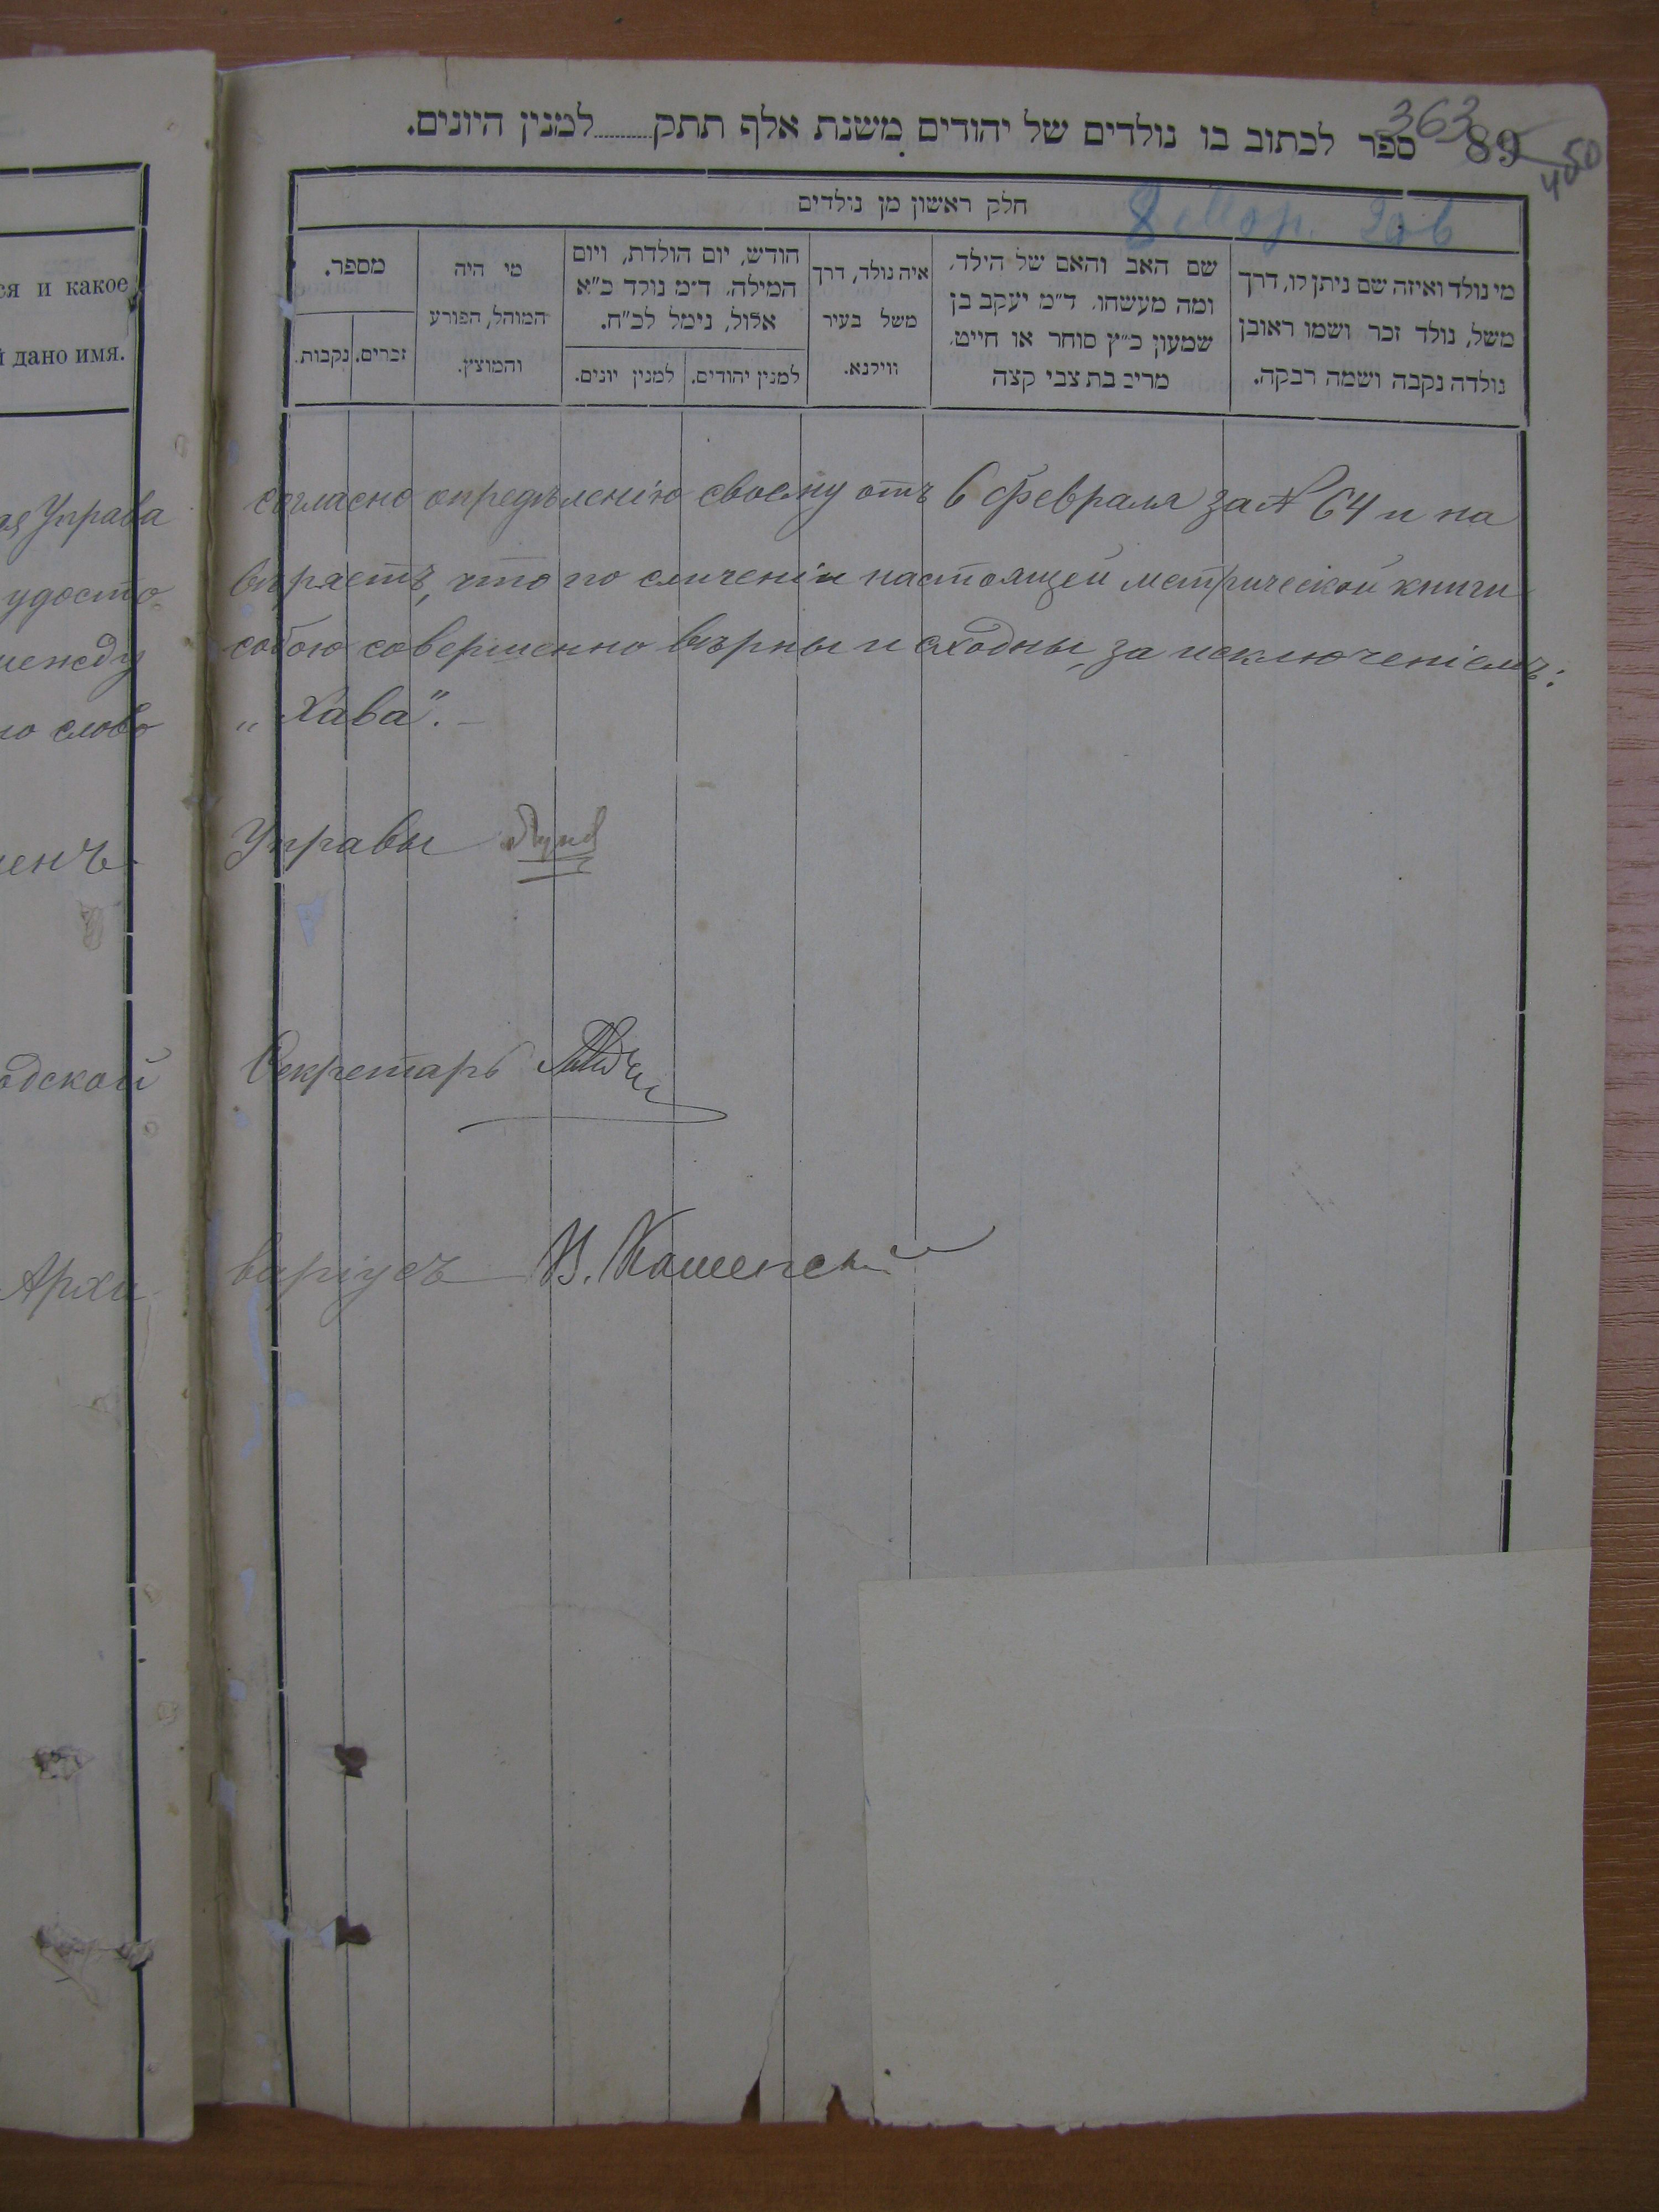 363
89
450
ספר לכתוב בו נולדים של יהודים משנת אלף תתק.........למנין היונים.
חלק ראשון מן נולדים
מי נולד ואיזה שם ניתן לו, דרך
משל, נולד זכר ושמו ראובן
נולדה נקבה ושמה רבקה.
שם האב והאם של הילד,
ומה מעשהו. ד״מ יעקב בן
שמעון כ״ץ סוחר או חייט,
מרים בת צבי קצה
איה נולד, דרך
משל בעיר
ווילנא.
חודש, יום הולדת, ויום
המילה. ד״מ נולד כ״א
אלול, נימל לכ״ח.
למנין יהודים.
למנין יונים.
מי היה
המוהל, הפורע
והמוצץ.
מספר.
זכרים.
נקבות.
ся и какое
й дано имя.
ая Управа
удосто
между
но слово
одской
Архи
согласно опредѣленію своему отъ 6 февраля за № 64 и на
вѣряетъ, что по сличеніи настоящей метрической книги
собою совершенно вѣрны и сходны, за исключеніемъ:
„Хава".—
Управы
Секретарь
варіусъ